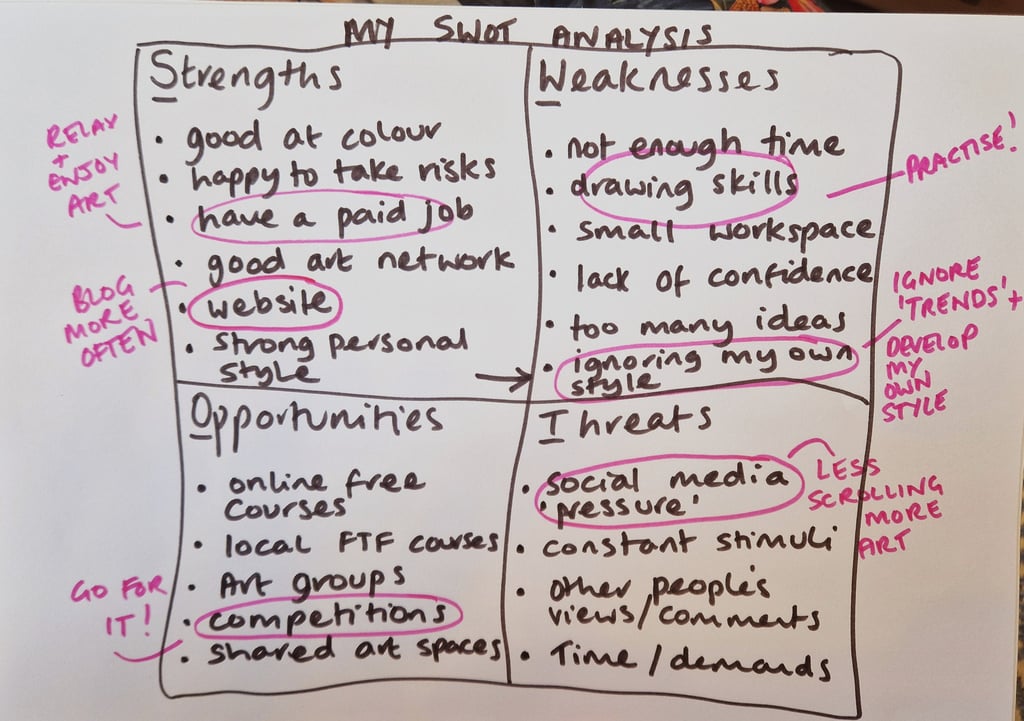 MY SWOT ANALYSIS
Strengths
• good at colour
• happy to take risks
• have a paid job
• good art network
• website
• strong personal
style
RELAX
+
ENJOY
ART
BLOG
MORE
OFTEN
Weaknesses
• not enough time
• drawing skills
• small workspace
• lack of confidence
• too many ideas
• ignoring my own
style
PRACTISE!
IGNORE
'TRENDS' +
DEVELOP
MY
OWN
STYLE
Opportunities
• online free
courses
• local FTF courses
• Art groups
• competitions
• shared art spaces
GO FOR
IT!
Threats
• social media
'pressure'
• constant stimuli
• other people's
views/comments
• Time/demands
LESS
SCROLLING
MORE
ART